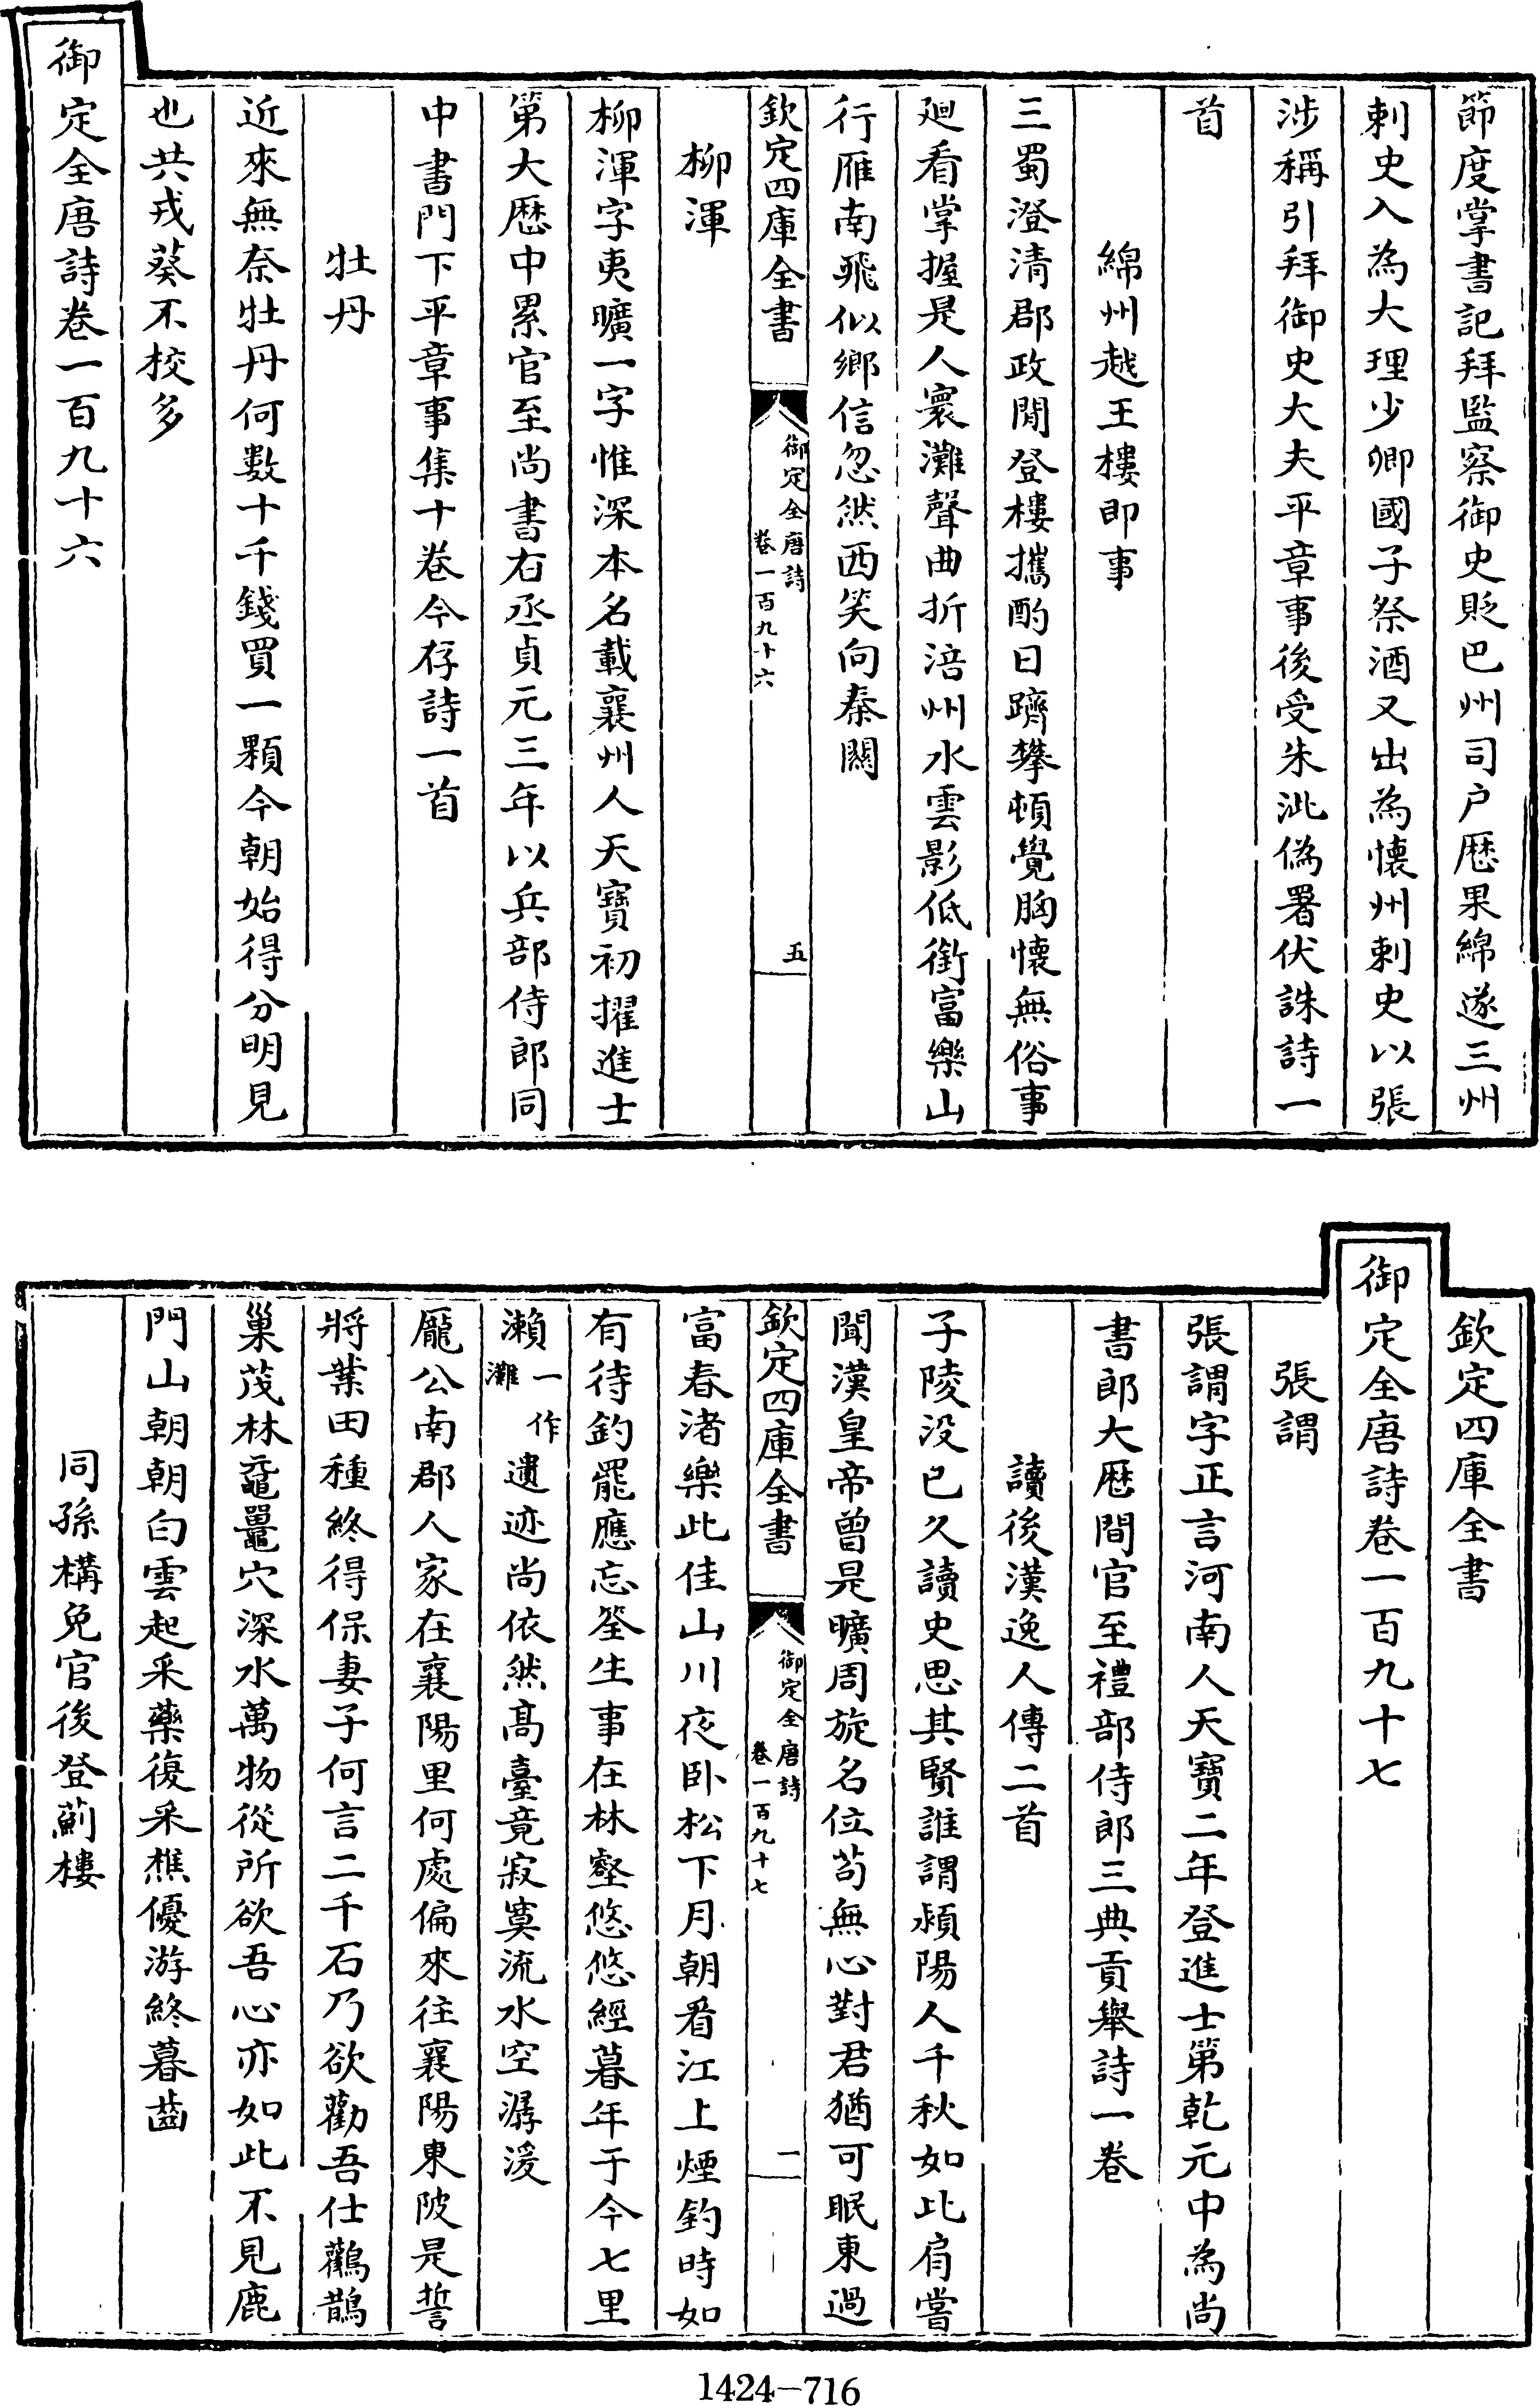 節度掌書記拜監察御史貶巴州司户歷果綿遂三州
刺史入為大理少卿國子祭酒又出為懷州刺史以張
涉稱引拜御史大夫平章事後受朱泚偽署伏誅詩一
首
綿州越王樓即事
三蜀澄清郡政閒登樓攜酌日躋攀頓覺胸懷無俗事
廻看掌握是人寰灘聲曲折涪州水雲影低銜富樂山
行雁南飛似鄉信忽然西笑向秦關
欽定四庫全書
御定全唐詩
卷一百九十六
五
柳渾
柳渾字夷曠一字惟深本名載襄州人天寶初擢進士
第大厯中累官至尚書右丞貞元三年以兵部侍郎同
中書門下平章事集十卷今存詩一首
牡丹
近來無奈牡丹何數十千錢買一顆今朝始得分明見
也共戎葵不校多
御定全唐詩卷一百九十六
欽定四庫全書
御定全唐詩卷一百九十七
張謂
張謂字正言河南人天寶二年登進士第乾元中為尚
書郎大厯間官至禮部侍郎三典貢舉詩一卷
讀後漢逸人傳二首
子陵没已久讀史思其賢誰謂潁陽人千秋如比肩嘗
聞漢皇帝曾是曠周旋名位茍無心對君猶可眠東過
欽定四庫全書
御定全唐詩
卷一百九十七
一
富春渚樂此佳山川夜卧松下月朝看江上煙釣時如
有待釣罷應忘筌生事在林壑悠悠經暮年于今七里
瀬一作灘遺迹尚依然髙臺竟寂寞流水空潺湲
龐公南郡人家在襄陽里何處偏來往襄陽東陂是誓
將業田種終得保妻子何言二千石乃欲勸吾仕鸛鵲
巢茂林黿鼉穴深水萬物從所欲吾心亦如此不見鹿
門山朝朝白雲起采藥復采樵優游終暮齒
同孫構免官後登薊樓
1424-716